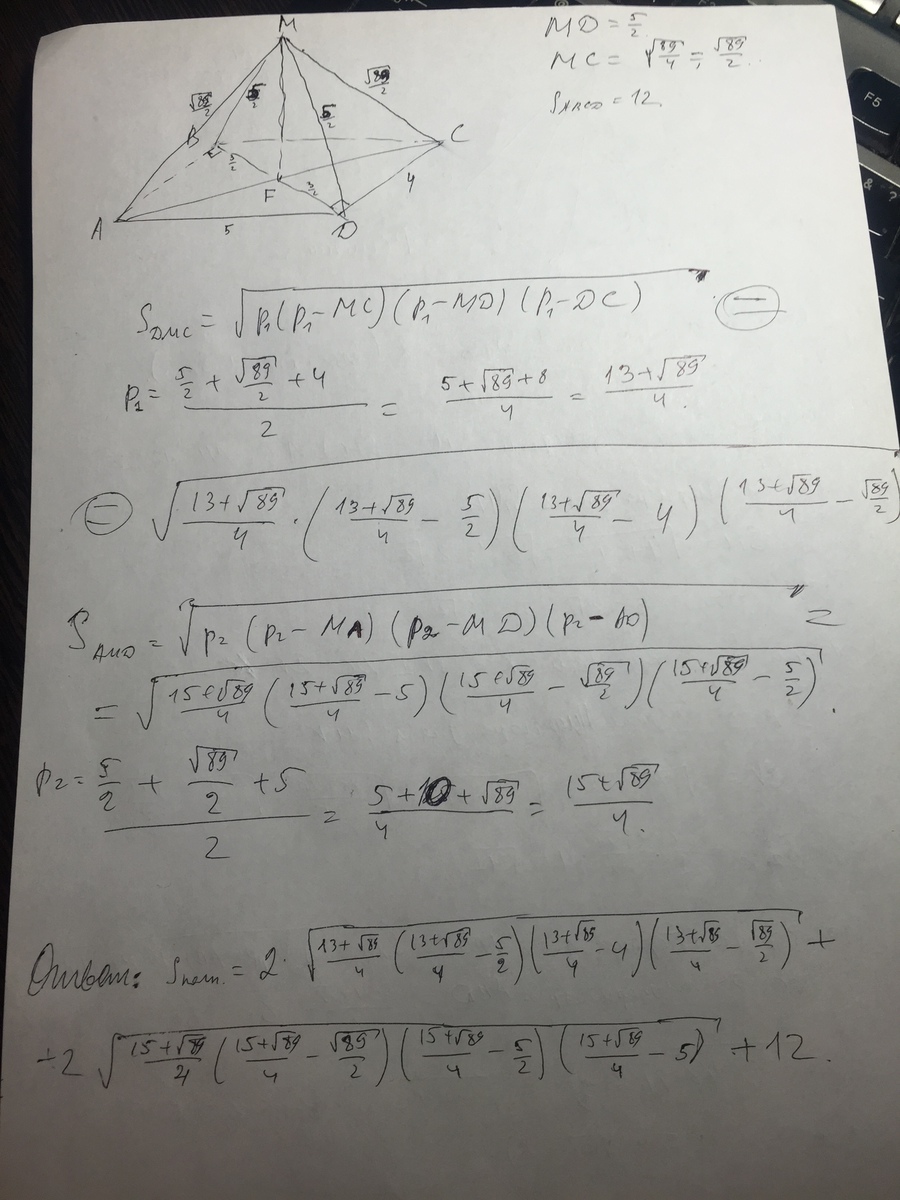 M
MD = 5/2
MC = √(89/4) = √89/2
S_ABCD = 12
√89/2 5/2 5/2 √89/2
B C
5/2 3/2 4
F
A 5 D
S_DMC = √(p₁(p₁-MC)(p₁-MD)(p₁-DC)) =
p₁ = (5/2 + √89/2 + 4)/2 = (5+√89+8)/4 = (13+√89)/4.
= √((13+√89)/4 · ((13+√89)/4 - 5/2)((13+√89)/4 - 4)((13+√89)/4 - √89/2))
S_AMD = √(p₂(p₂-MA)(p₂-MD)(p₂-AD)) =
= √((15+√89)/4 ((15+√89)/4 - 5)((15+√89)/4 - √89/2)((15+√89)/4 - 5/2)).
p₂ = (5/2 + √89/2 + 5)/2 = (5+10+√89)/4 = (15+√89)/4.
Ответ: Sпол. = 2·√((13+√89)/4 ((13+√89)/4 - 5/2)((13+√89)/4 - 4)((13+√89)/4 - √89/2)) +
+2 √((15+√89)/4 ((15+√89)/4 - √89/2)((15+√89)/4 - 5/2)((15+√89)/4 - 5)) + 12.
F5
&
?